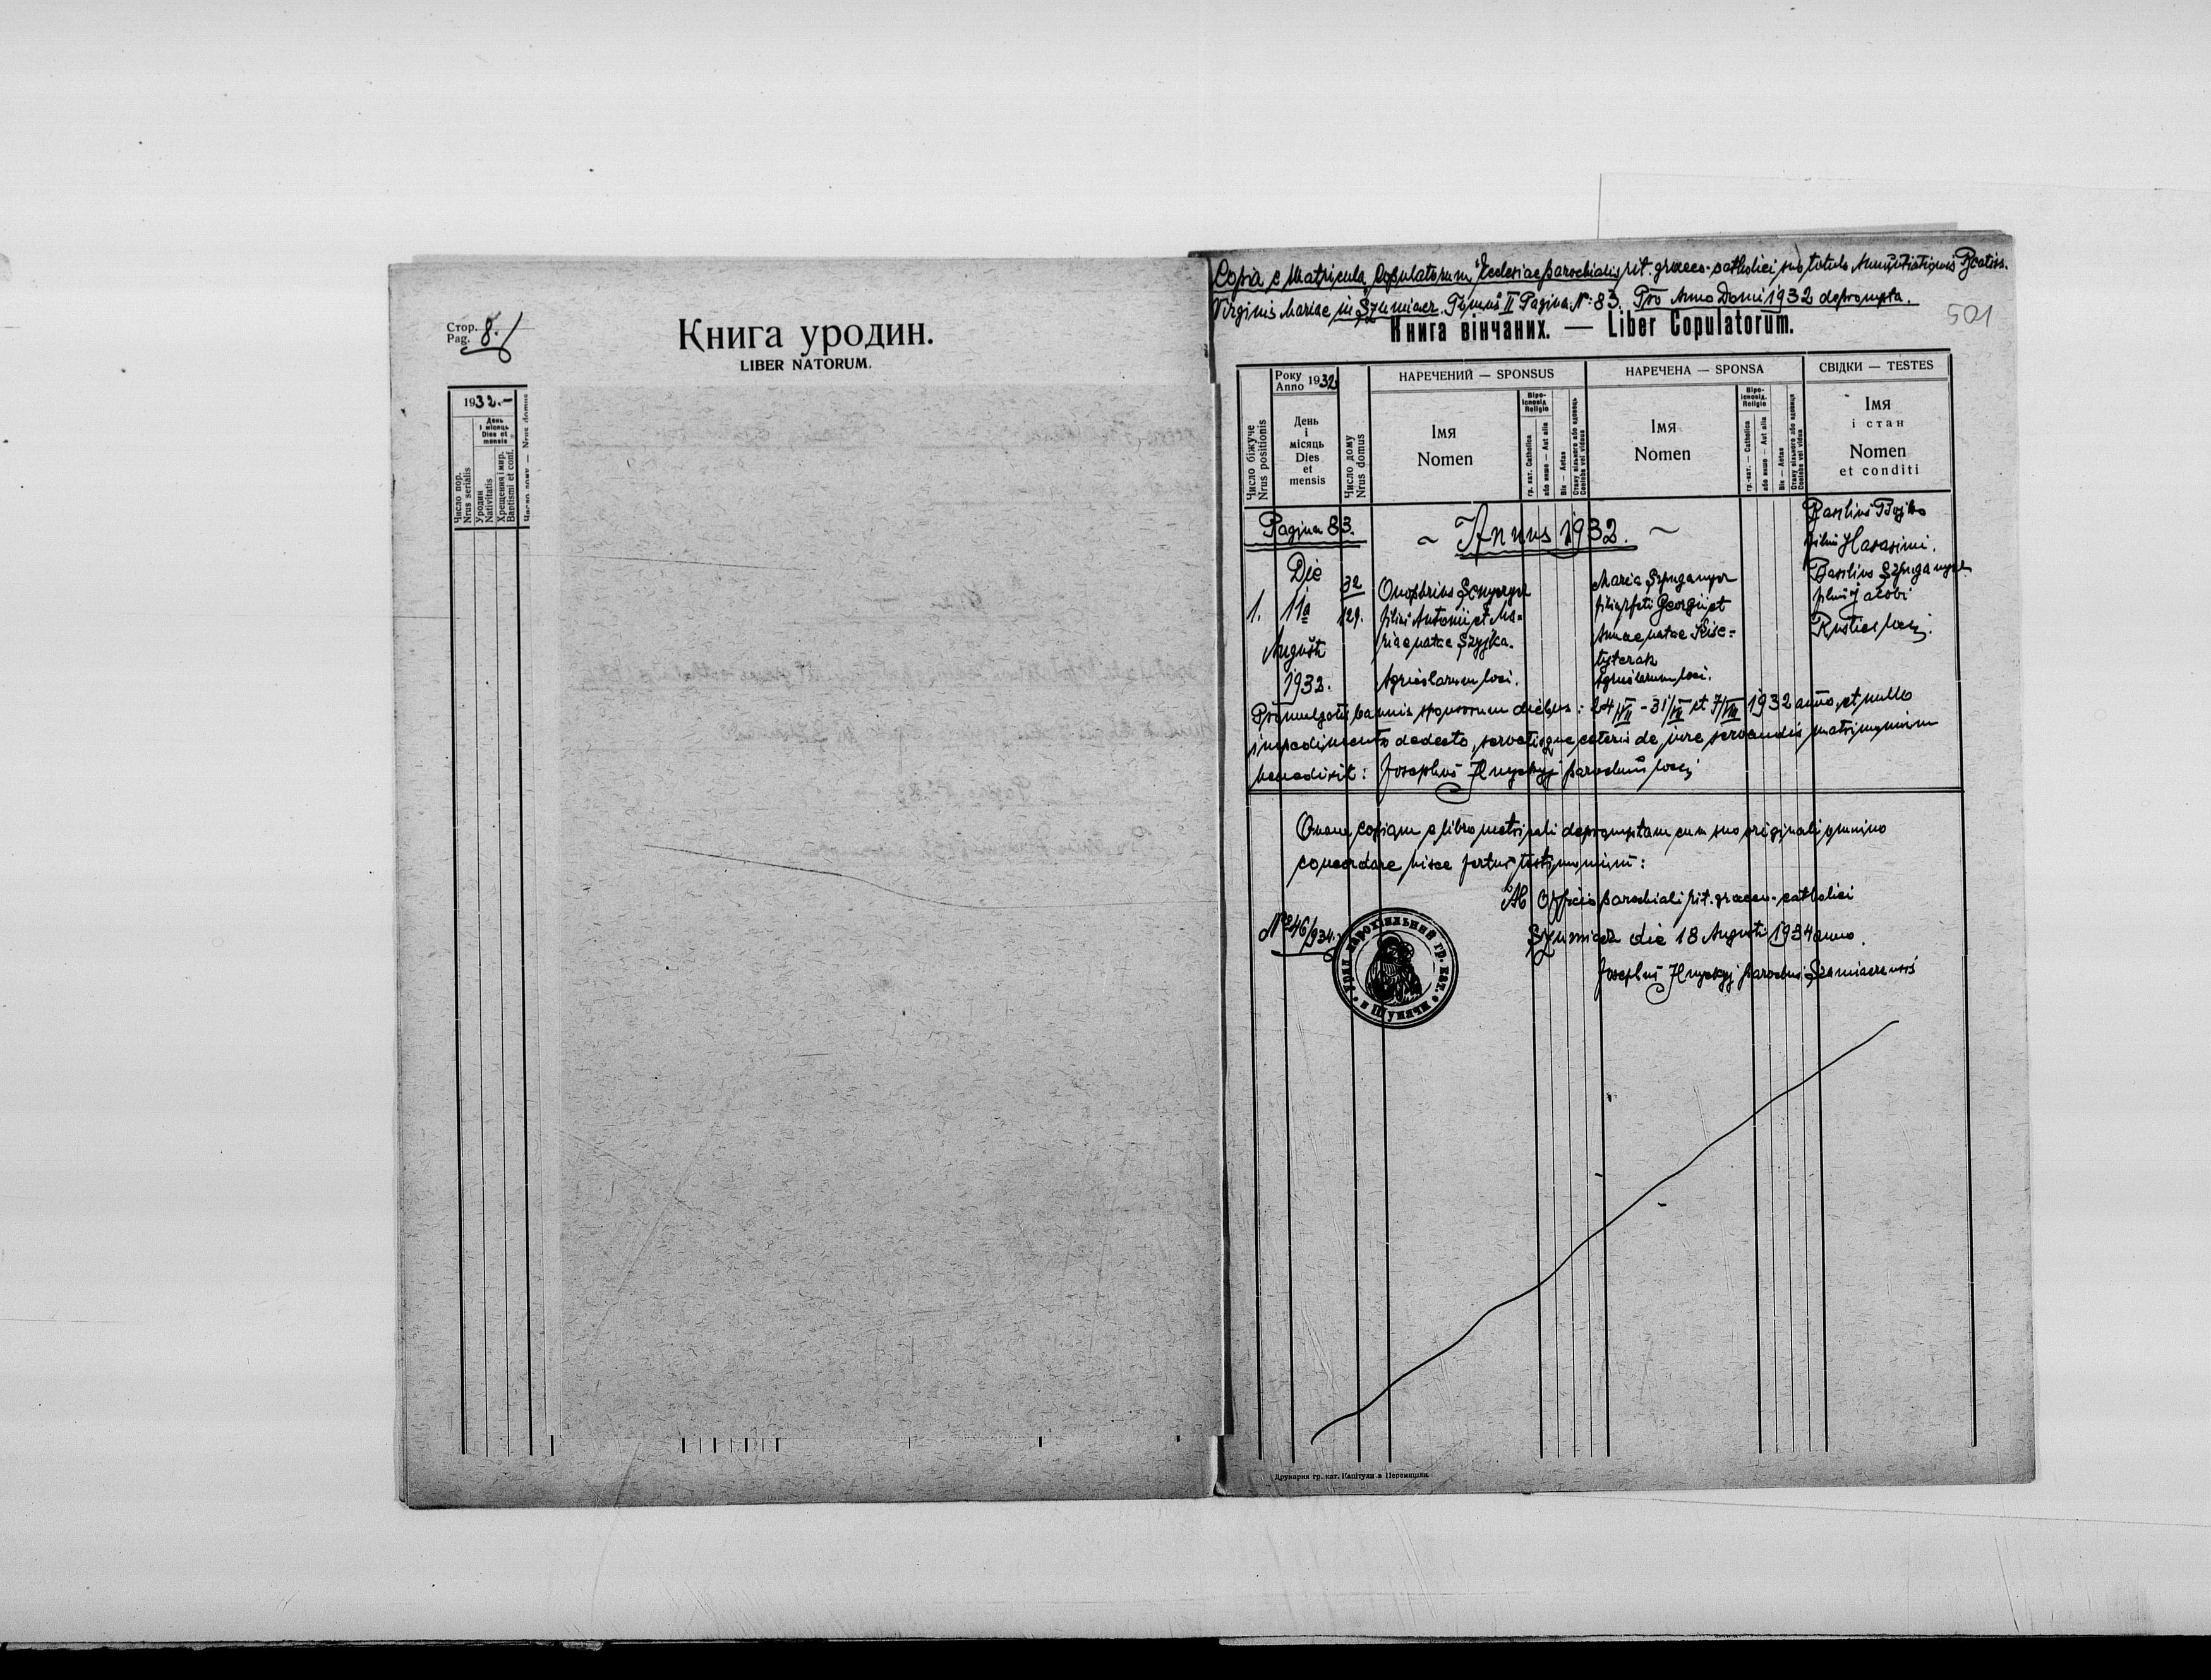 Стор.
Pag. 8.
Книга уродин.
LIBER NATORUM.
1932.-
День
і місяць
Dies et
mensis
Число пор.
Nrus serialis
Уродин
Nativitatis
Хрещення і мир.
Baptismi et conf.
Число дому — Nrus domus
Copia e Matricula Copulatorum Ecclesiae parochialis rit. graeco-catholici sub titulo Annuntiationis Beatiss.
Virginis Mariae in Szumiacz. Tomus II Pagina N: 83. Pro Anno Domi 1932 deprompta.
501
Книга вінчаних. — Liber Copulatorum.
Число біжуче
Nrus positionis
Року
Anno 1932
День
і
місяць
Dies
et
mensis
Число дому
Nrus domus
НАРЕЧЕНИЙ — SPONSUS
Імя
Nomen
Віро-
ісповід.
Religio
гр. кат. Catholica
або инше — Aut alia
Вік — Aetas
Стану вільного або вдовець
Coelebs vel viduus
НАРЕЧЕНА — SPONSA
Імя
Nomen
Віро-
ісповід.
Religio
гр.-кат. — Catholica
або инше — Aut alia
Вік — Aetas
Стану вільного або вдовиця
Coelebs vel vidua
СВІДКИ — TESTES
Імя
і стан
Nomen
et conditi
Pagina 83.
~ Annus 1932. ~
1.
Die
11a
Augusti
1932.
32
129.
Onophrius
filius Antonii et Ma-
riae natae Szyjka.
Agricolarum loci.
Maria Szpuganycz
filia Georgii et
Annae natae
Agricolarum loci.
Basilius Bojko
filius Harasimi.
Basilius Szpuganycz
filius Jacobi
Rustici loci.
Promulgatis bannis sponsorum diebus: 24/VII - 31/VII et 7/VIII 1932 anno, et nullo
impedimento dedecto, servatisque ceteris de jure servandis matrimonium
benedixit: Josephus Hnyckyj parochus loci
Hanc copiam e libro metricali depromptam cum suo originali omnino
concordare hisce fertur testimonium:
Ab Officio parochiali rit. graeco-catholici
Szumiacz die 18 Augusti 1934 anno.
Josephus Hnyckyj parochus Szumiacensis
No 246/934.
Уряд парохіяльний гр. кат. в Шумячи
Друкарня гр. кат. Капітули в Перемишли